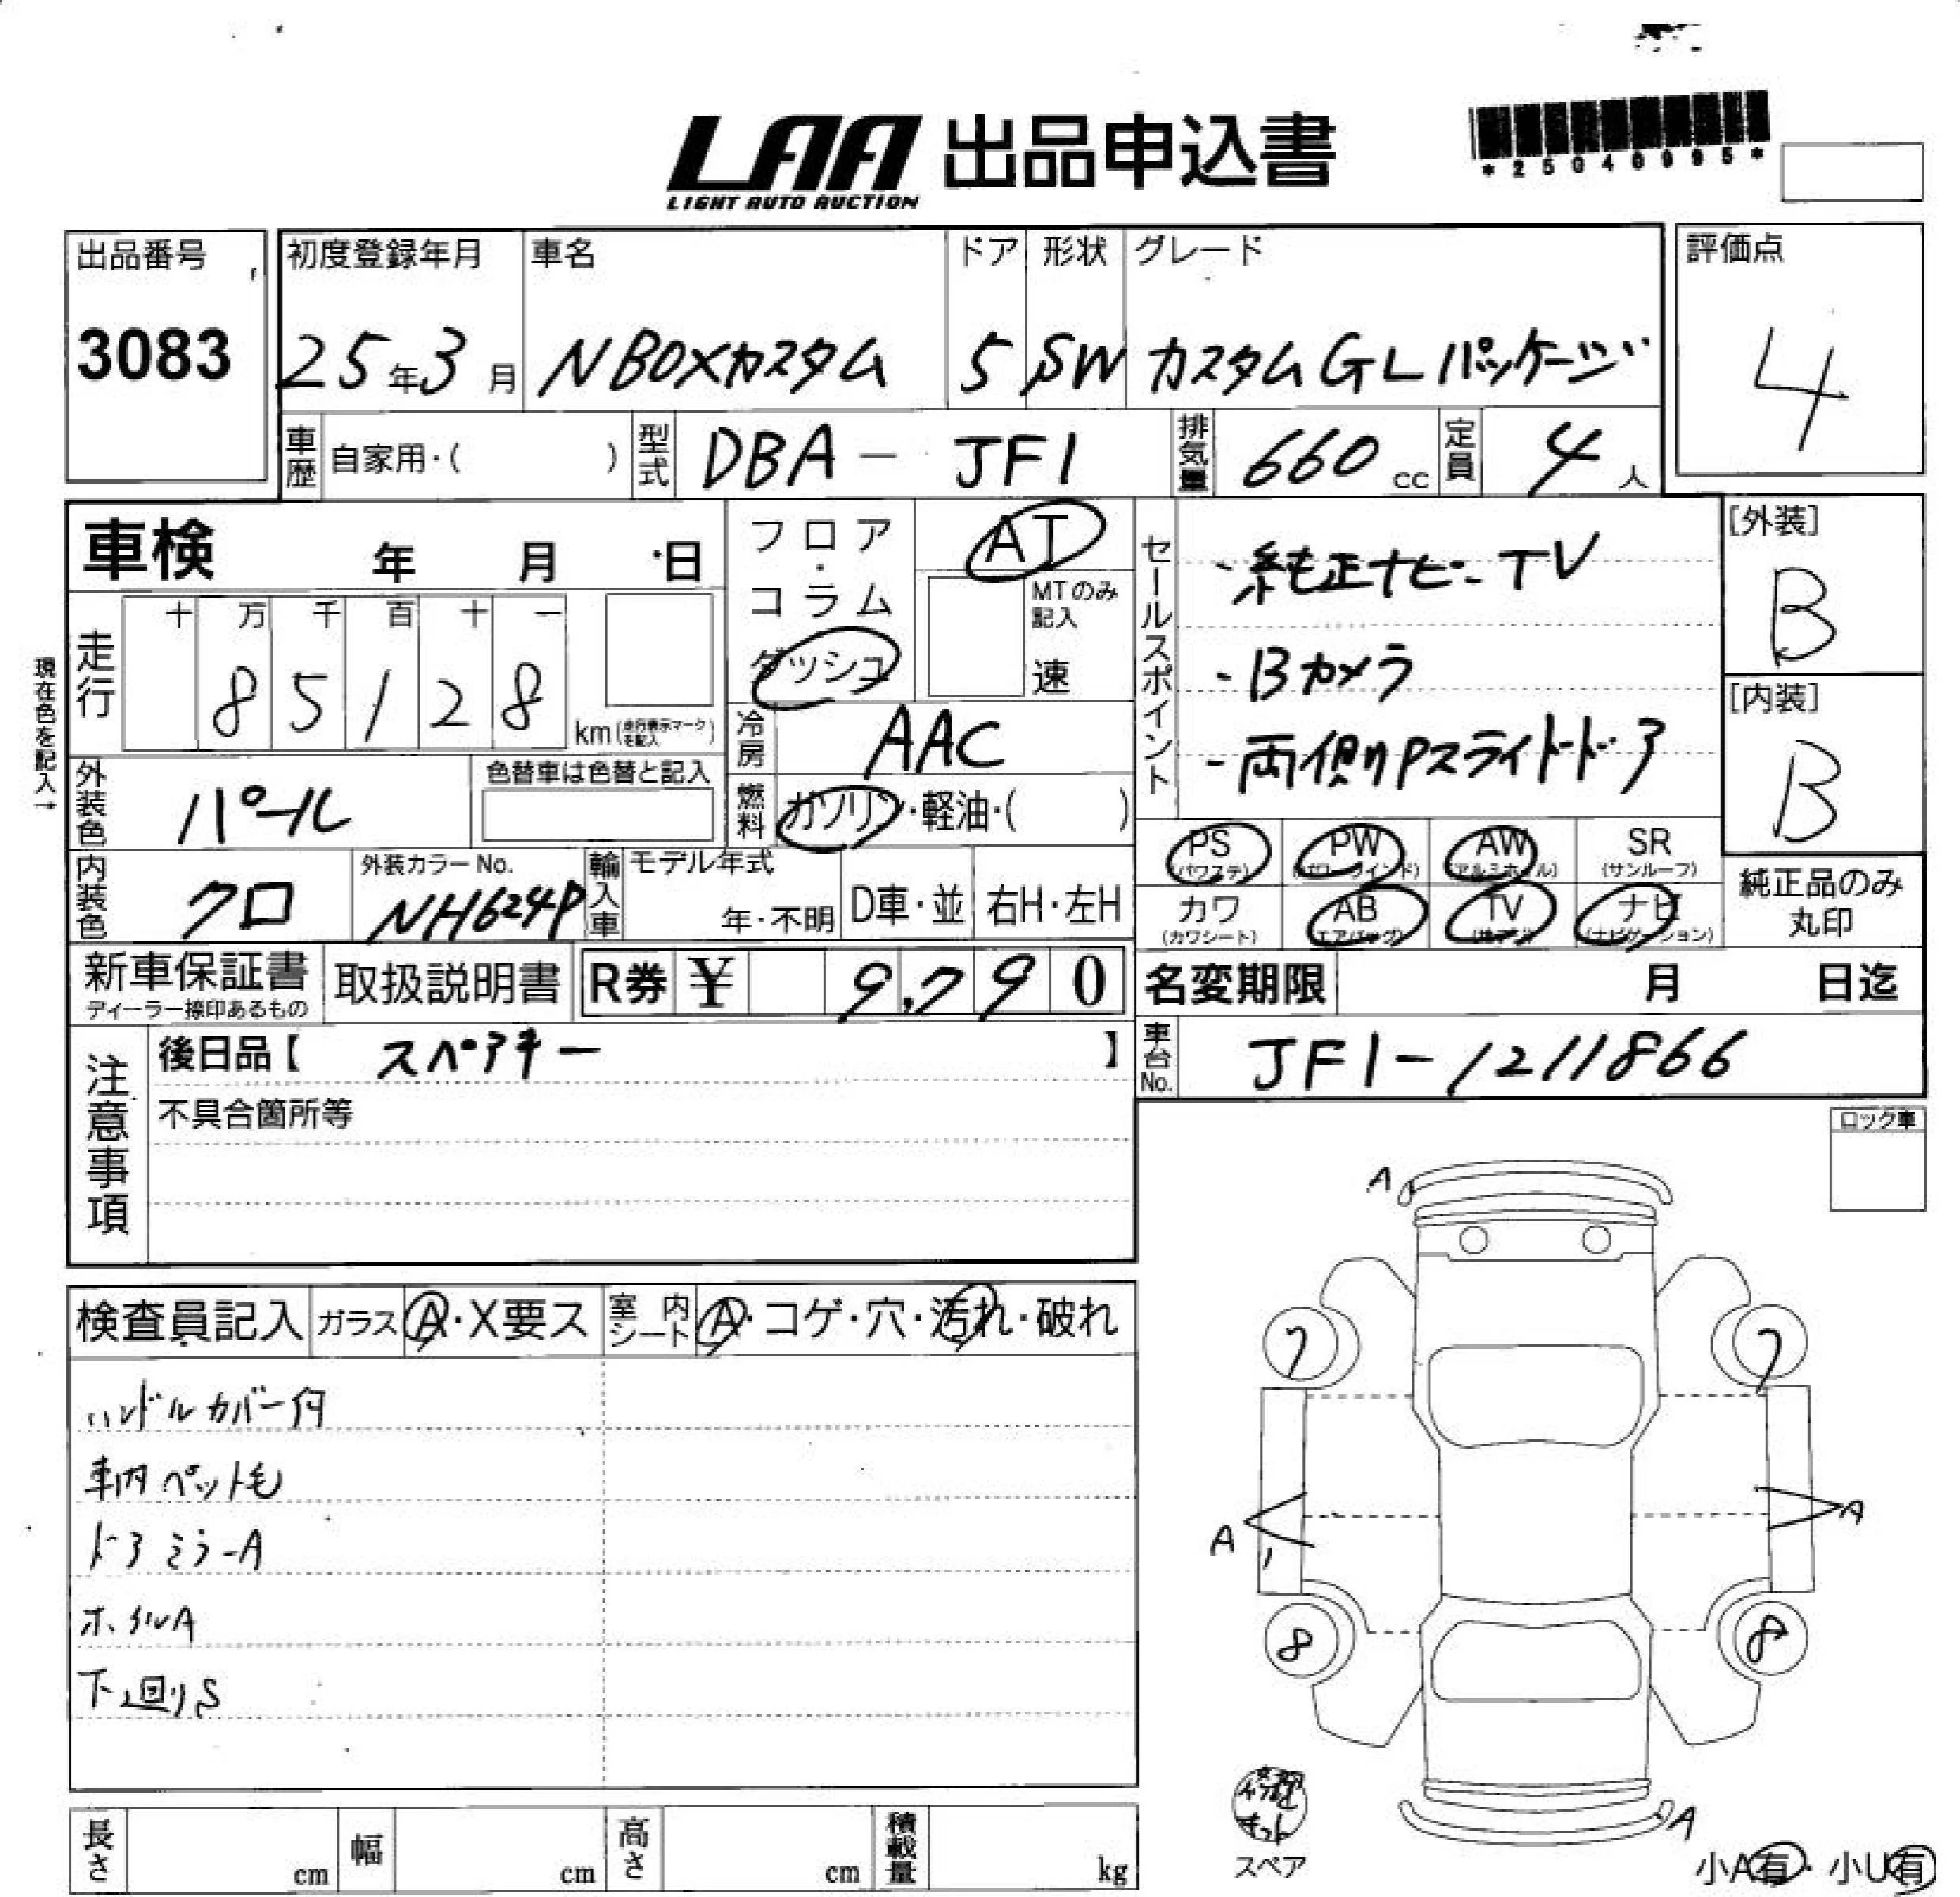 LAA 出品申込書
LIGHT AUTO AUCTION
*25040995*
出品番号
3083
初度登録年月
25年3月
車名
NBOXカスタム
ドア
5
形状
SW
グレード
カスタムGLパッケージ
評価点
4
車歴 自家用・( )
型式 DBA-JF1
排気量 660 cc
定員 4人
車検 年 月 日
フロア・コラム
ダッシュ
AT
MTのみ記入
速
セールスポイント
・純正ナビ-TV
-Bカメラ
-両側Pスライドドア
[外装]
B
[内装]
B
現在色を記入→
走行
十 万 千 百 十 一
8 5 1 2 8
km(走行表示マークを記入)
冷房 AAC
外装色 パール
色替車は色替と記入
燃料 ガソリン・軽油・( )
PS (パワステ)
PW (パワーウインド)
AW (アルミホイル)
SR (サンルーフ)
カワ (カワシート)
AB (エアバッグ)
TV
ナビ (ナビゲーション)
純正品のみ丸印
内装色 クロ
外装カラーNo.
NH624P
輸入車
モデル年式
年・不明
D車・並
右H・左H
新車保証書
ディーラー捺印あるもの
取扱説明書
R券 ¥ 9,790
名変期限 月 日迄
注意事項
後日品【 スペアキー 】
不具合箇所等
車台No. JF1-1211866
ロック車
検査員記入
ガラス A・X要ス
室内シート A・コゲ・穴・汚れ・破れ
ハンドルカバー付
車内ペット毛
ドアミラーA
ホイルA
下廻りS
A
7 7
A A
8 8
A
修理キット
スペア
小A有・小U有
長さ cm
幅 cm
高さ cm
積載量 kg